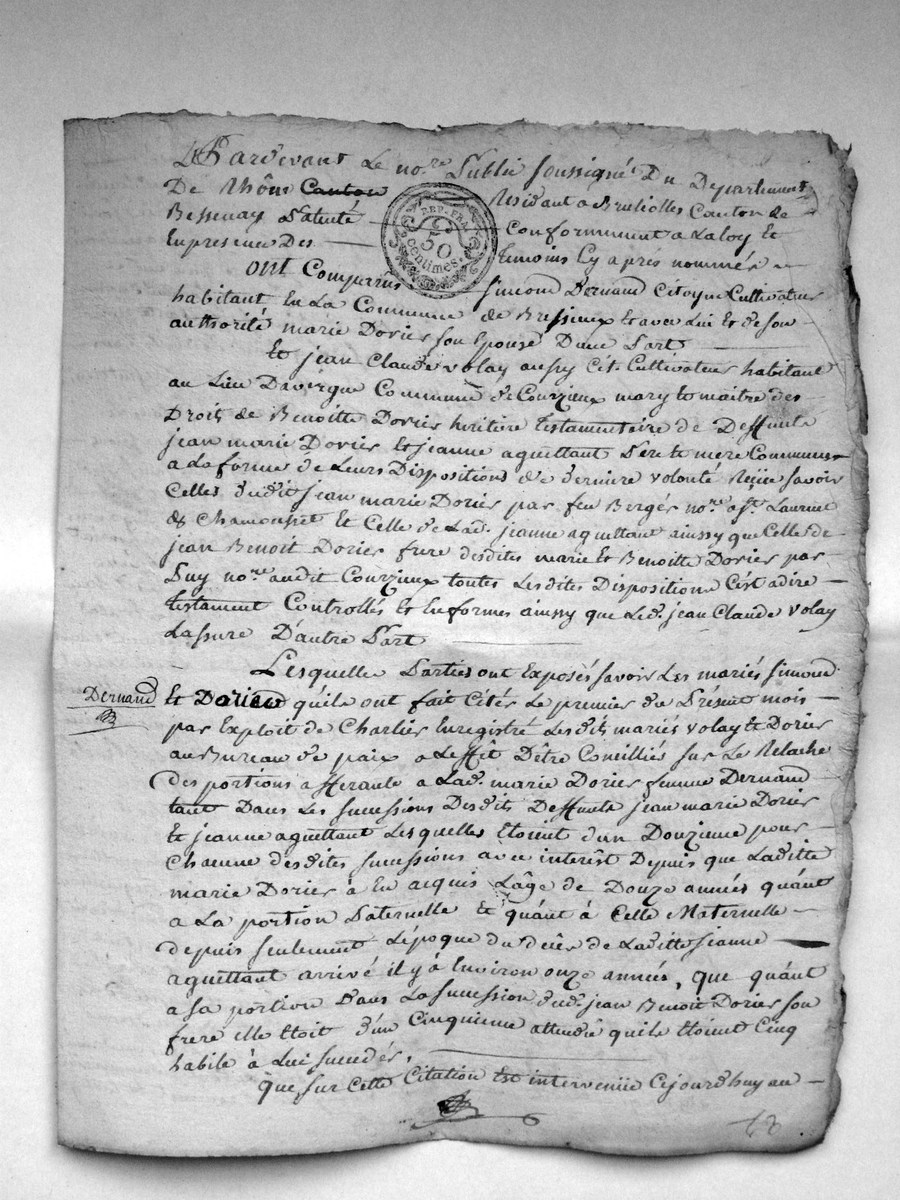 Pardevant Le no.re Public soussigné Du Departement
De Rhône Canton Residant a Brulliolles Canton de
Bessenay Patenté conformement a La loy Et
En presence Des temoins Cy après nommés
REP. FRA. 50 centimes.
Ont Comparrus simond Dernand Citoyen Cultivateur
habitant En La Commune de Bressieux Et avec Lui Et de son
authorité marie Dorier son Epouse D'une Part
Et jean Claude Volay aussy Cit. Cultivateur habitant
au Lieu Davergue Commune de Courzieux mary Et maitre des
Droits de Benoitte Dorier heritiere testamentaire de Deffunts
jean marie Dorier Et jeanne aguettant Pere Et mere Communs
a La forme de Leurs Dispositions de derniere volonté Reçue savoir
Celles dudit jean marie Dorier par feu Bergés no.re a St. Laurent
de Chamousset Et Celle de Lad. jeanne aguettant ainssy que Celle de
jean Benoit Dorier frere desdites marie Et Benoitte Dorier par
Puy no.re audit Courzieux toutes Lesdites Dispositions C'est adire
testament Controllés Et En formes ainssy que Led. jean Claude Volay
L'assure D'autre Part
Lesquelle Parties ont Exposés savoir Les mariés simond
Dernand
Et Dorier qu'ile ont fait Citér Le premier du Présent mois
par Exploit de Charlier Enregistré Lesdits mariés Volay Et Dorier
au Bureau de paix a L'effèt D'être Conciliés sur Le Relache
des portions afferante a Lad. marie Dorier femme Dernand
tant Dans Les sucessions Desdits Deffunts jean marie Dorier
Et jeanne aguettant Lesquelles Etoient d'un Douzieme pour
Chacune desdites sucessions avec interêt Depuis que Laditte
marie Dorier à En acquis L'âge de Douze années quânt
a La portion Paternelle Et quânt à Celle Maternelle
depuis seulement L'époque du décès de Laditte jeanne
aguettant arrivé il y à Environ onze années, que quânt
a sa portion dans La sucession dud. jean Benoit Dorier son
frere elle Etoit d'un Cinquieme attendû qu'ile Etoient Cinq
habile à Lui sucedér.
Que sur Cette Citation Est intervenüe Cejourdhuy au